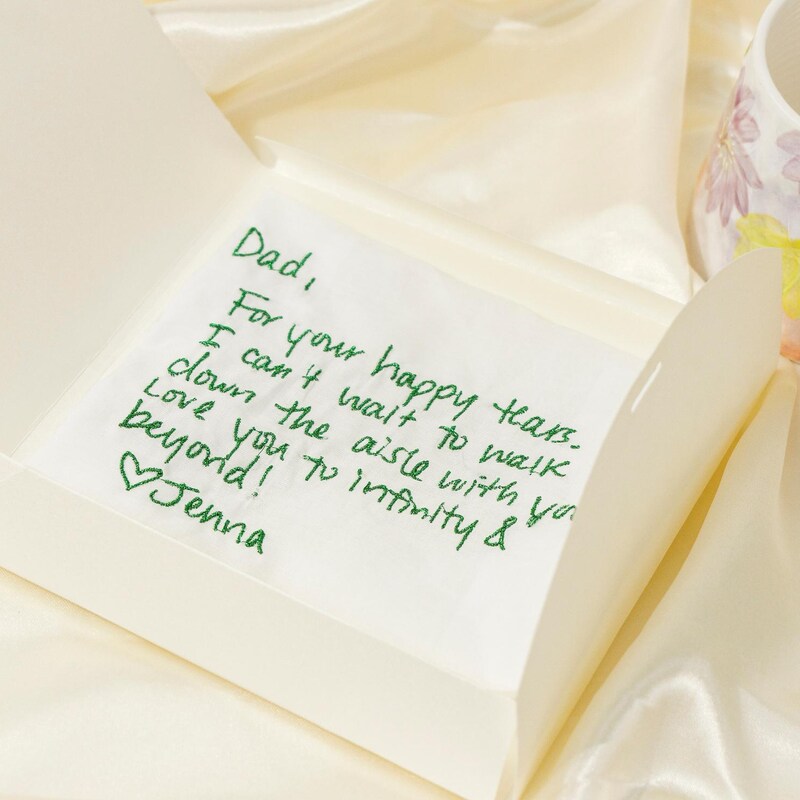 Dad,
For your happy tears.
I can't wait to walk
down the aisle with yo
Love you to infinity &
beyond!
♡Jenna